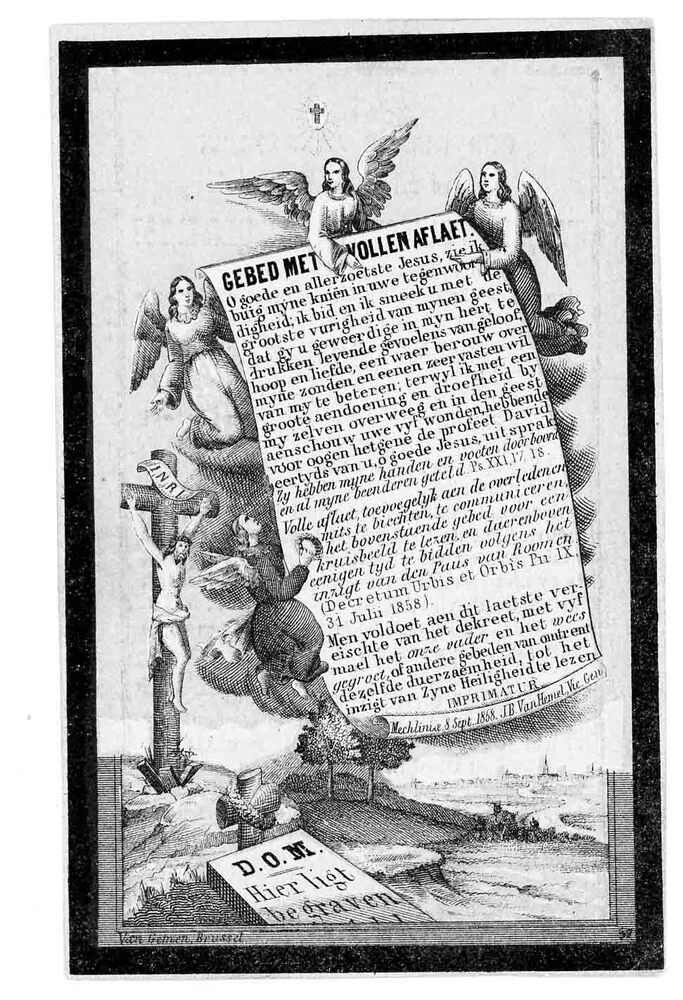 GEBED MET VOLLEN AFLAET.
O goede en allerzoetste Jesus, zie ik
buig myne kniën in uwe tegenwoor
digheid, ik bid en ik smeek u met de
grootste vurigheid van mynen geest,
dat gy u geweerdige in myn hert te
drukken levende gevoelens van geloof,
hoop en liefde, een waer berouw over
myne zonden en eenen zeer vasten wil
van my te beteren; terwyl ik met een
groote aendoening en droefheid by
my zelven overweeg en in den geest
aenschouw uwe vyf wonden, hebbende
voor oogen hetgéne de profeet David
eertyds van u, o goede Jesus, uitsprak:
Zy hebben myne handen en voeten doorboord
en al myne beenderen geteld. Ps. XXI, 17, 18.
Volle aflaet, toevoegelyk aen de overledenen
mits te biechten, te communiceren
het bovenstaende gebed voor een
kruisbeeld te lezen, en daerenboven
eenigen tyd te bidden volgens het
inzigt van den Paus van Roomen
(Decretum Urbis et Orbis Pii IX.
31 Julii 1858).
Men voldoet aen dit laetste ver-
eischte van het dekreet, met vyf
mael het onze vader en het wees
gegroet, of andere gebeden van omtrent
dezelfde duerzaemheid, tot het
inzigt van Zyne Heiligheid te lezen
IMPRIMATUR
Mechliniæ 8 Sept. 1868. J.B. Van Hemel, Vic. Gen.
INRI
D.O.M.
Hier ligt
begraven
Van Gemen, Brussel